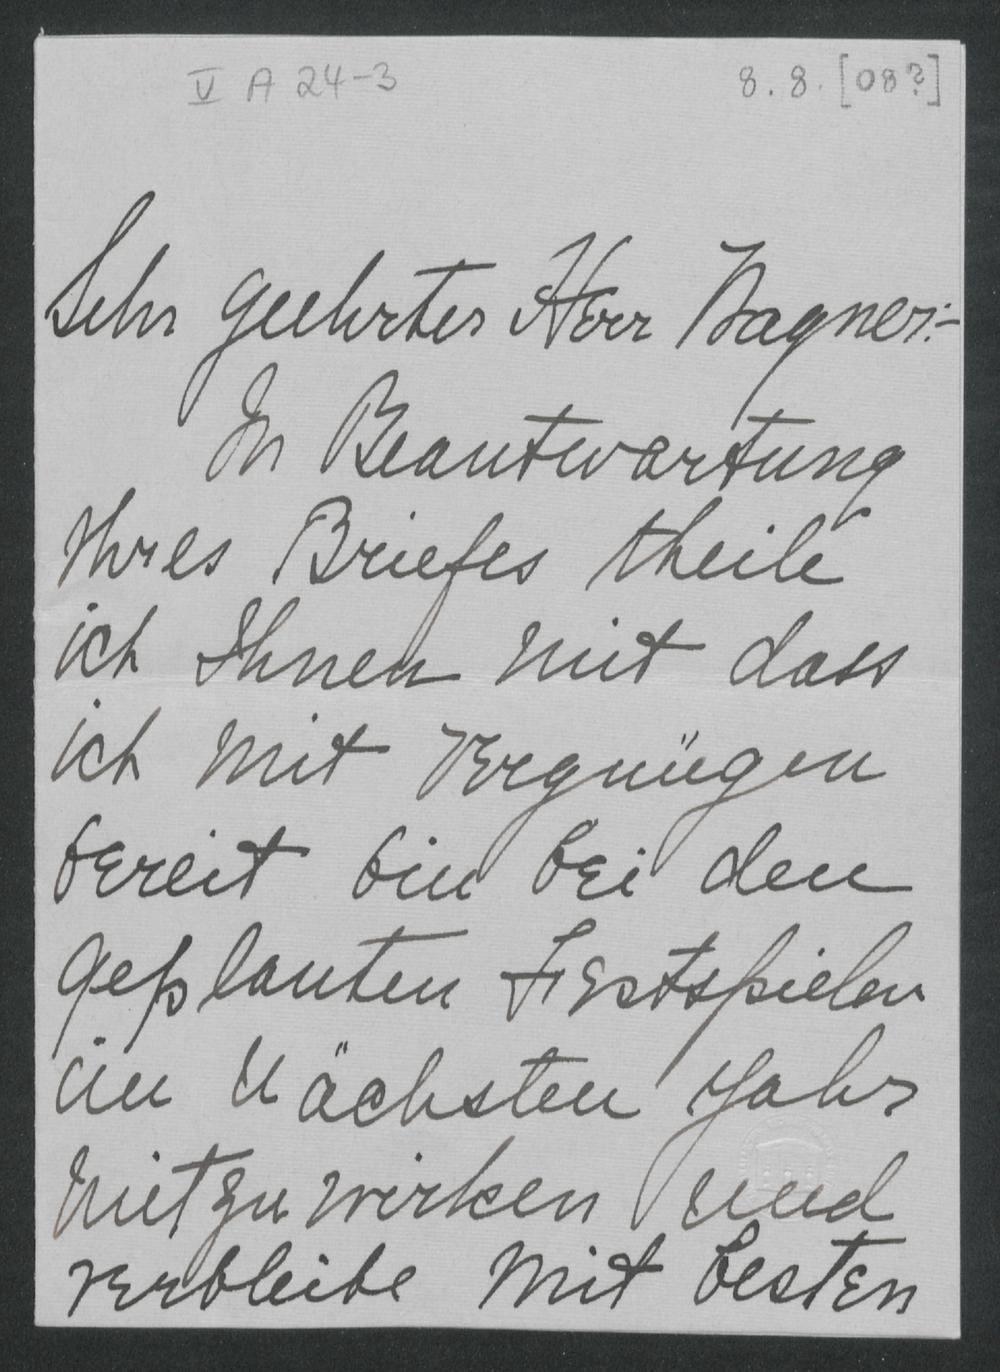 V A 24-3
8. 8. [08?]
Sehr geehrter Herr Wagner:-
In Beantwortung
Ihres Briefes theile
ich Ihnen mit dass
ich mit Vergnügen
bereit bin bei den
geplanten Festspielen
im nächsten Jahr
mitzuwirken und
verbleibe mit besten